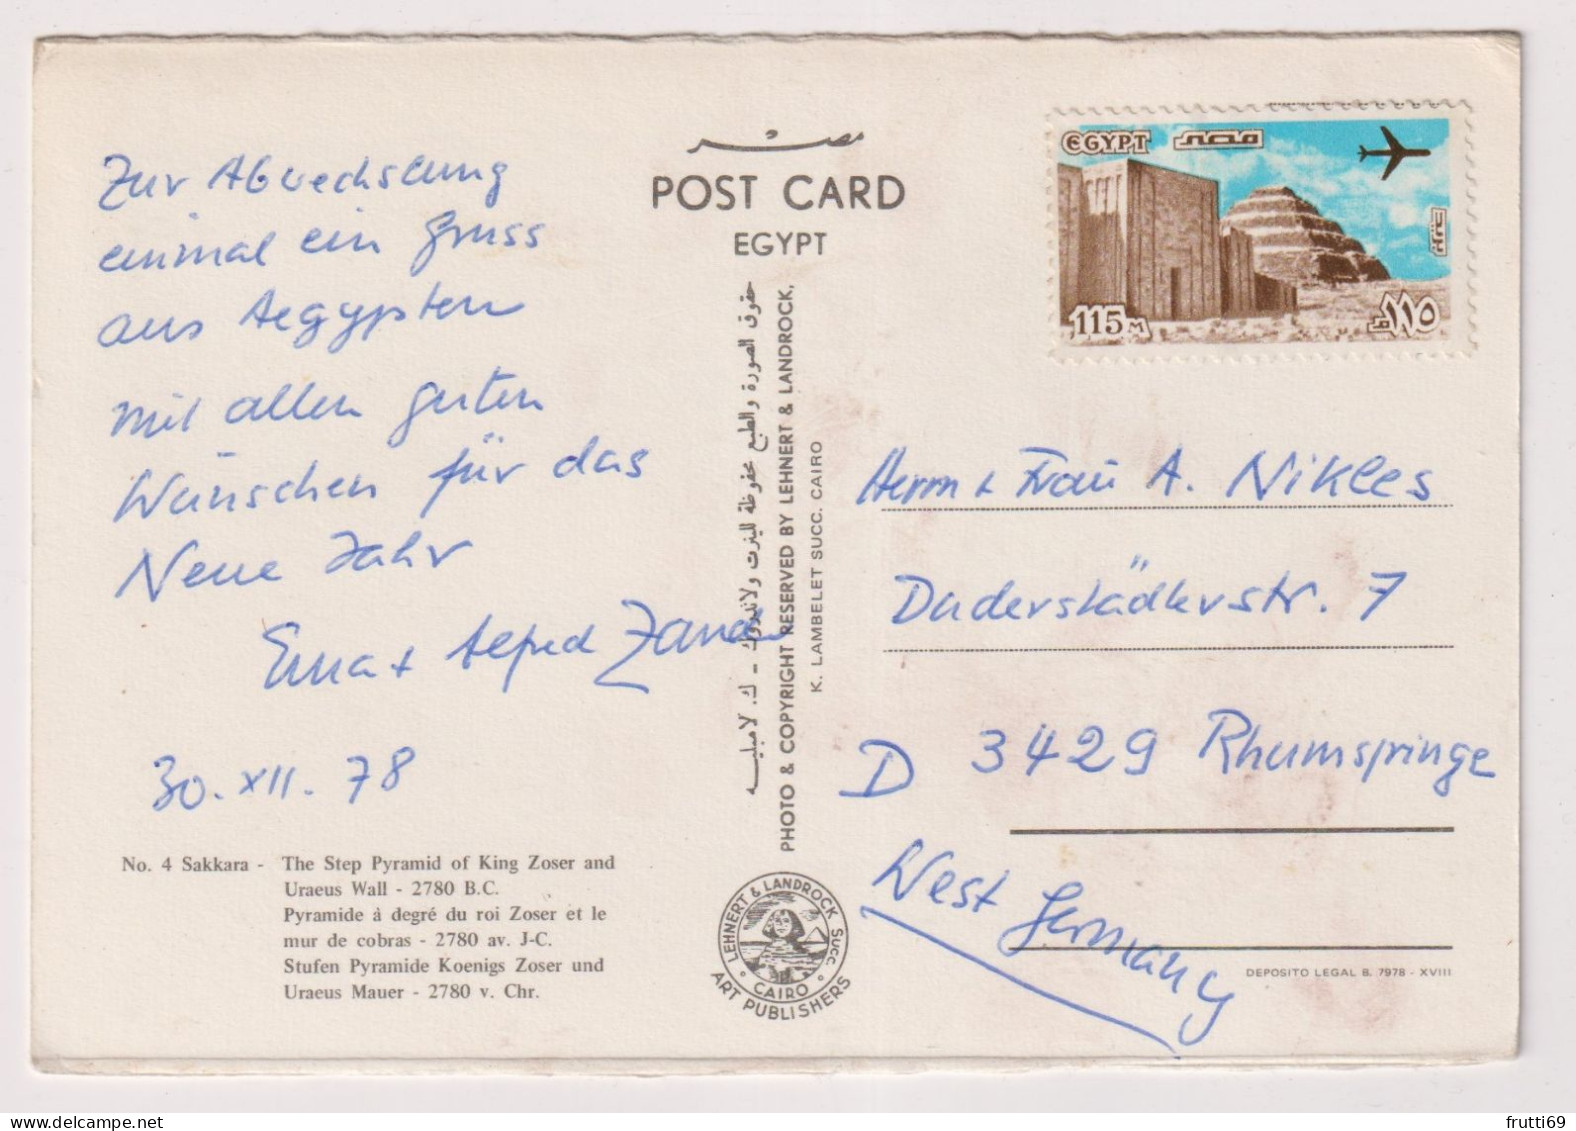 Zur Abwechslung
einmal ein Gruss
aus Aegypten
mit allen guten
Wünschen für das
Neue Jahr
Erna + Alfred
30. XII. 78
No. 4 Sakkara - The Step Pyramid of King Zoser and
Uraeus Wall - 2780 B.C.
Pyramide à degré du roi Zoser et le
mur de cobras - 2780 av. J-C.
Stufen Pyramide Koenigs Zoser und
Uraeus Mauer - 2780 v. Chr.
مصر
POST CARD
EGYPT
حقوق الصورة و الطبع محفوظة للينرت ولاندروك - ك. لامبليه
PHOTO & COPYRIGHT RESERVED BY LEHNERT & LANDROCK,
K. LAMBELET SUCC. CAIRO
LEHNERT & LANDROCK SUCC.
CAIRO
ART PUBLISHERS
EGYPT مصر
115 M ١١٥ م
Herrn + Frau A. Nikles
Duderstädterstr. 7
D 3429 Rhumspringe
West Germany
DEPOSITO LEGAL B. 7978 - XVIII
frutti69